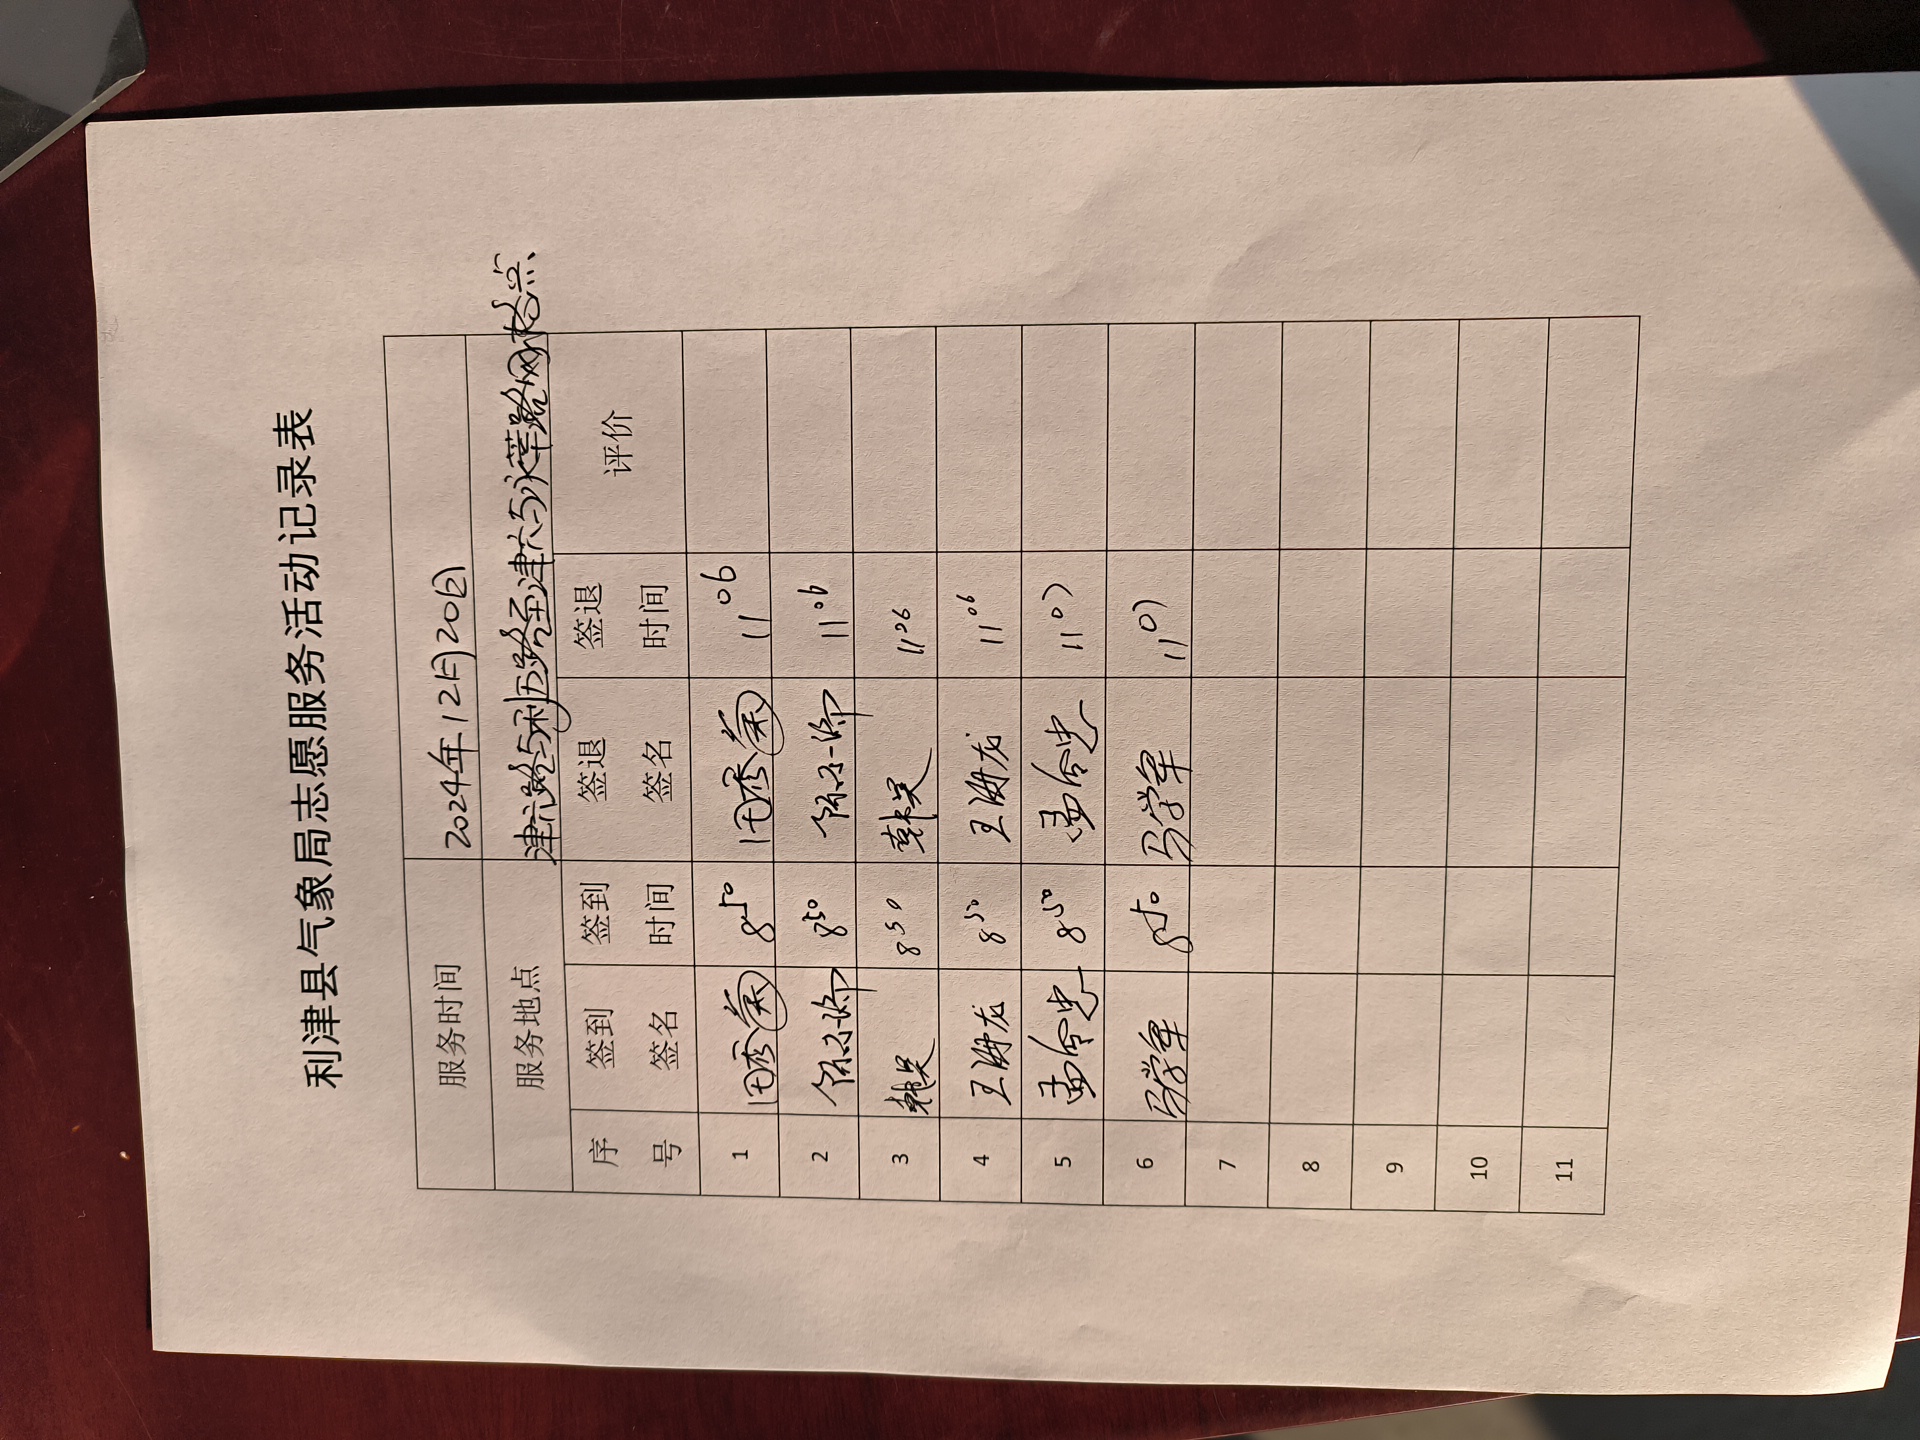 利津县气象局志愿服务活动记录表
服务时间 2024年12月20日
服务地点 津六路与利五路至津六与永莘路网格点
序号 签到签名 签到时间 签退签名 签退时间 评价
1 田秀菊 8 50 田秀菊 11 06
2 8 50 11 06
3 韩昊 8 50 韩昊 11 06
4 王海龙 8 50 王海龙 11 06
5 孟令忠 8 50 孟令忠 11 07
6 马学军 8 50 马学军 11 07
7
8
9
10
11